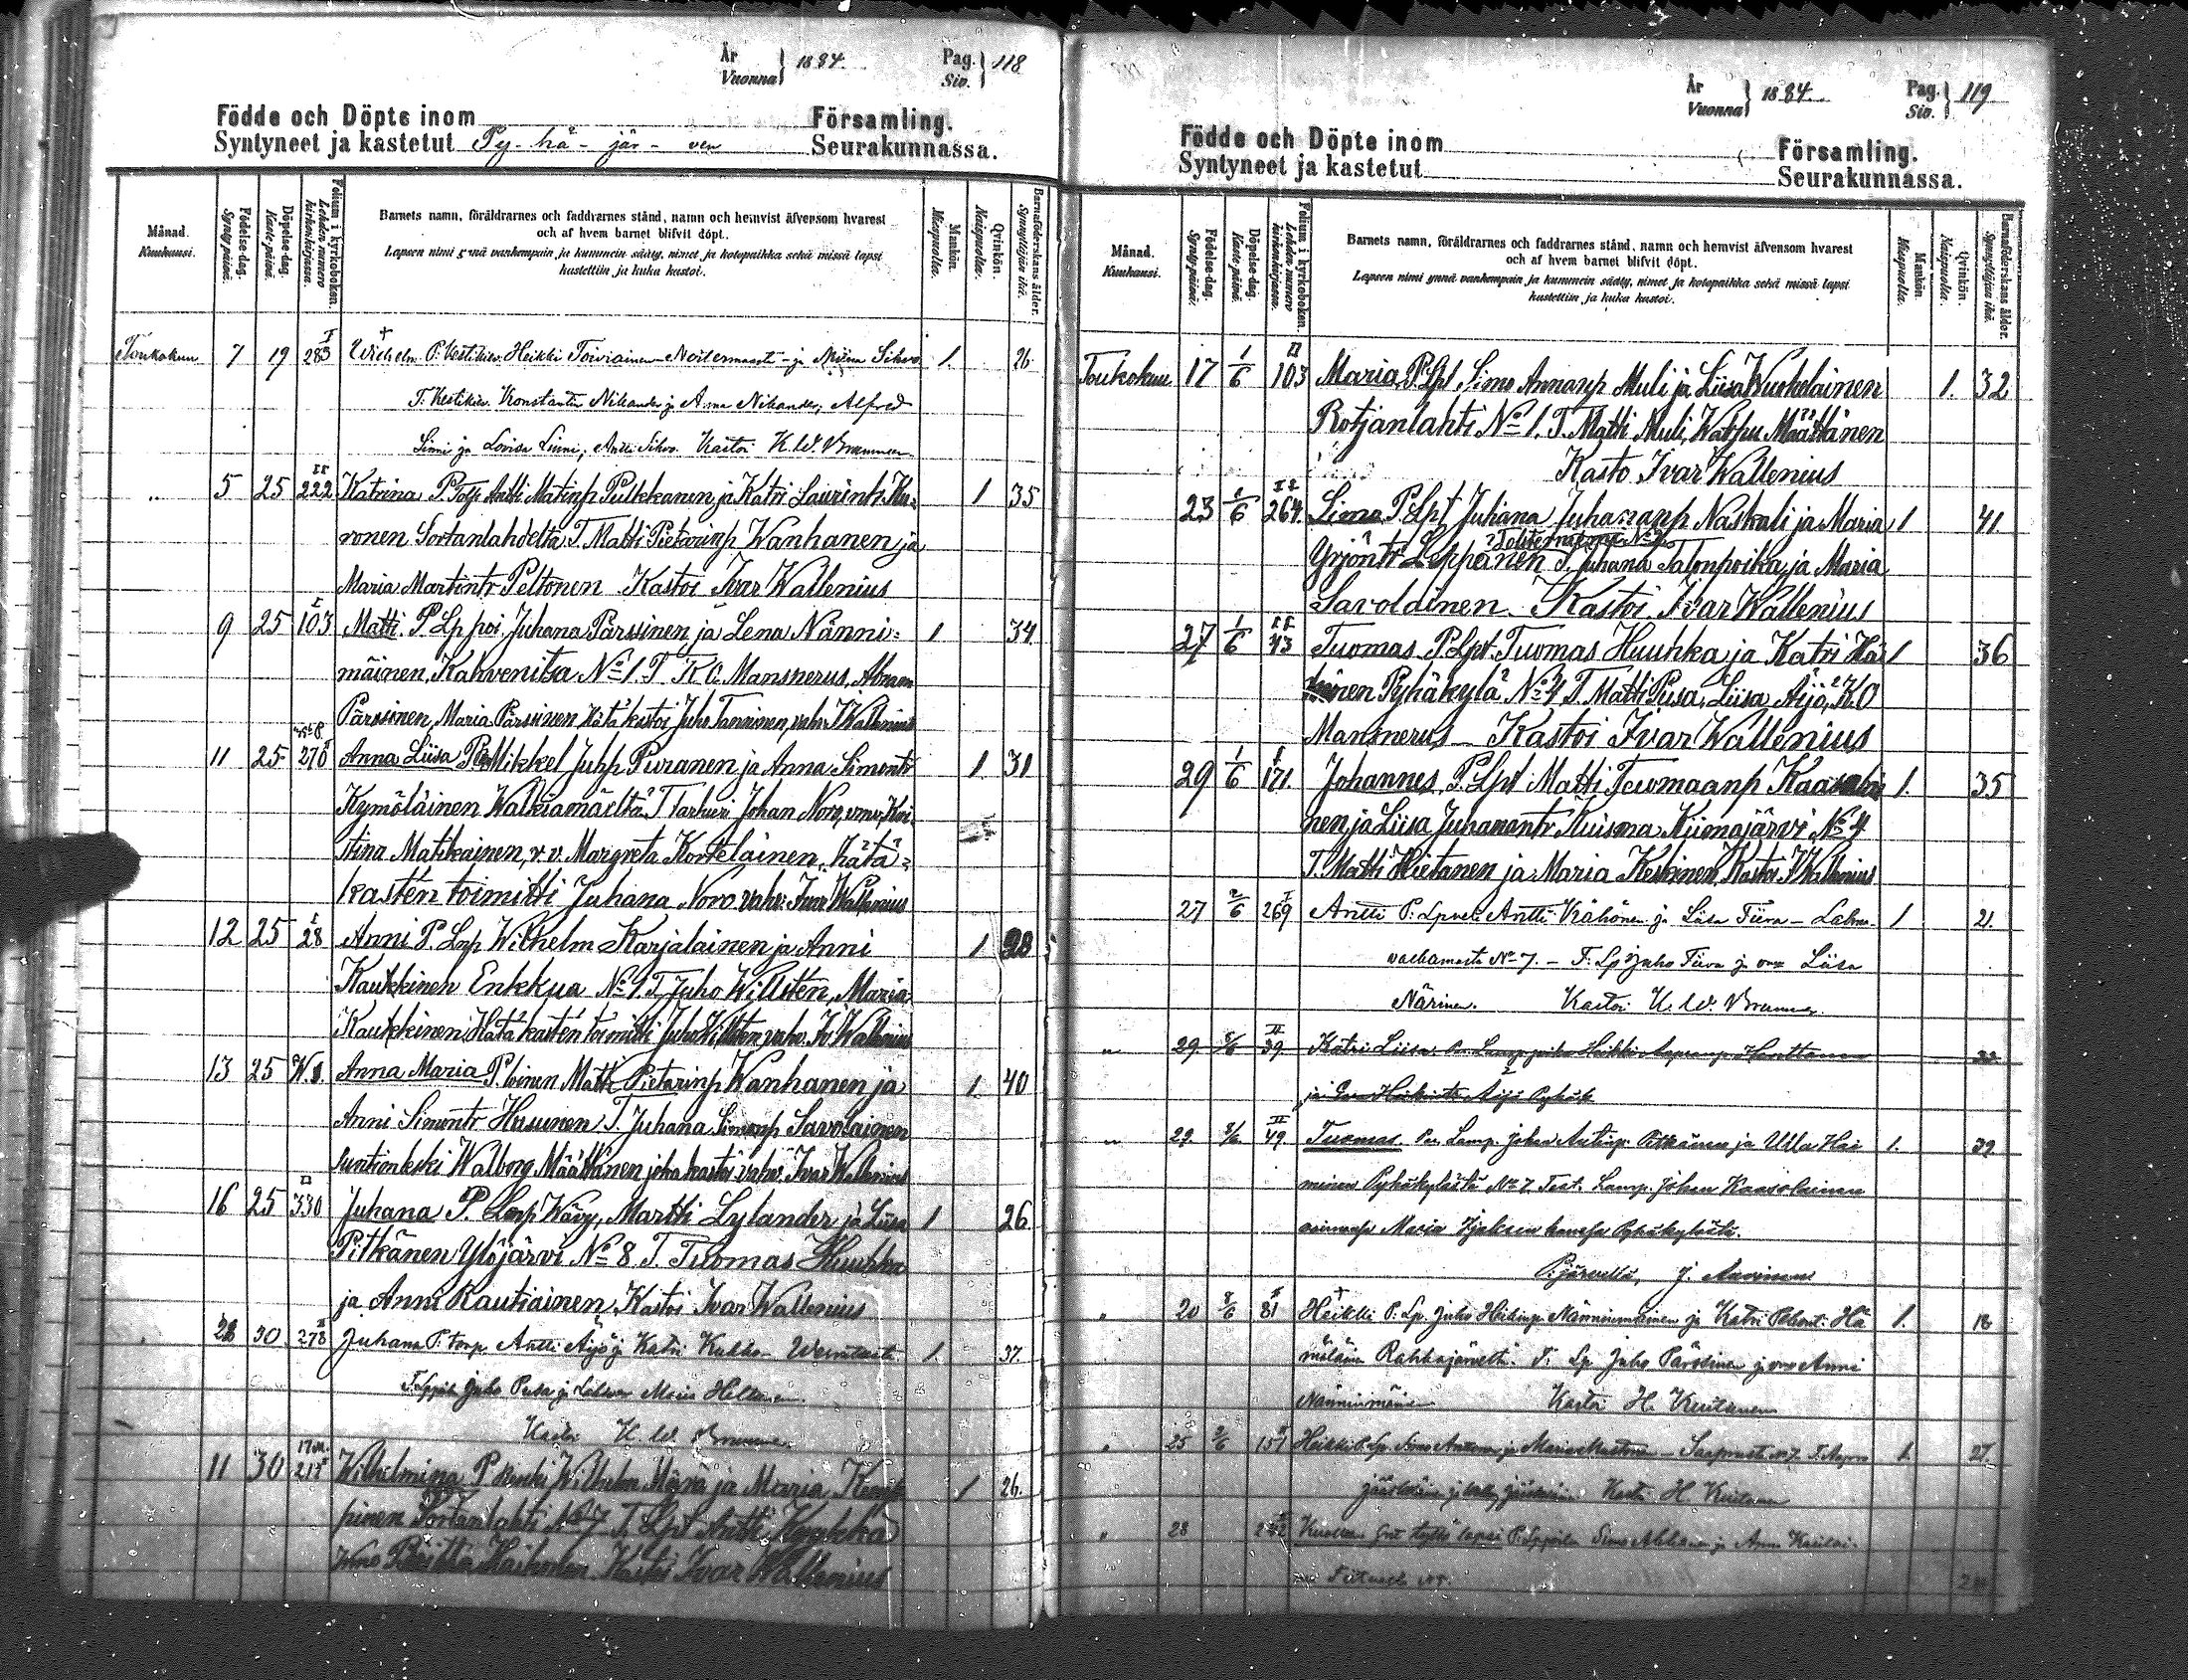 År
Vuonna } 1884.
Pag.
Siv. } 118
Födde och Döpte inom Församling.
Syntyneet ja kastetut Py-hä-jär-ven Seurakunnassa.
Månad. Kuukausi.
Födelse-dag. Synty-päivä.
Döpelse-dag. Kaste-päivä.
Folium i kyrkoboken. Lehden numero kirkonkirjassa.
Barnets namn, föräldrarnes och faddrarnes stånd, namn och hemvist äfvensom hvarest
och af hvem barnet blifvit döpt.
Lapsen nimi ynnä vanhempain ja kummein sääty, nimet ja kotopaikka sekä missä lapsi
kastettiin ja kuka kastoi.
Mankön. Miespuolta.
Qvinkön. Naispuolta.
Barnaföderskans ålder. Synnyttäjän ikä.
Toukokuu 7 19 I 283 Wilhelm P. Kestikiev. Heikki Toiviainen ja Miina Sihvo 1. 26
T. Kestikiev. Konstantin Nikander ja Anna Nikander, Alfred
Linni ja Lovisa Linni, Antti Sihvo. Kastoi K. W. Brummer
" 5 25 II 222 Katrina P. Antti Matinp Pulkkanen ja Katri Laurintr Hu- 1 35
ronen Sortanlahdelta T. Matti Pietarinp Wanhanen ja
Maria Martintr Peltonen Kastoi Ivar Wallenius
9 25 I 103 Matti. P Lp poi. Juhana Pärssinen ja Lena Nänni- 1 34
mäinen, Kahvenitsa No 1. T K O Mansnerus, Abram
Pärssinen, Maria Pärssinen, Hätäkastoi Juho Tanninen, vahv. I Wallenius
11 25 270 Anna Liisa P. Mikkel Juhp. Puranen ja Anna Simontr 1 31
Kymöläinen Walkiamäeltä T. Johan Noro, vmo Kri-
stina Matikainen, v. v. Margreta Kortelainen. Hätä-
kasten toimitti Juhana Noro vahv. Ivar Wallenius
12 25 I 28 Anni P. Lmp Wilhelm Karjalainen ja Anni 1 28
Kaukkinen Enkkua No 1. T. Juho Willstén, Maria
Kaukkinen, Hätäkasten toimitti Juho Willsten vahv. Iv Wallenius
13 25 W. 1. Anna Maria P. loinen Matti Pietarinp Wanhanen ja 1. 40
Anni Simontr Hasunen T. Juhana Simonp Savolainen
suntionleski Walborg Määttänen joka kastoi vahv. Ivar Wallenius
16 25 II 330 Juhana P. Lmp Wävy, Martti Lylander ja Liisa 1 26
Pitkänen Ylöjärvi No 8 T. Tuomas Huuhka
ja Anni Rautiainen, Kastoi Ivar Wallenius
28 30 278 Juhana P. Torp. Antti Äijö ja Katri Kukko 1. 37.
T. Lppoik Juho Pusa ja Maria
Kastoi K. W. Brummer
11 30 Wilhelmina P Renki Wilhelm Mävä ja Maria Kemp- 1 26.
pinen Sortanlahti No 7 T. Lpt Antti
vmo Kastoi Ivar Wallenius
År
Vuonna } 1884.
Pag.
Siv. } 119
Födde och Döpte inom Församling.
Syntyneet ja kastetut Seurakunnassa.
Månad. Kuukausi.
Födelse-dag. Synty-päivä.
Döpelse-dag. Kaste-päivä.
Folium i kyrkoboken. Lehden numero kirkonkirjassa.
Barnets namn, föräldrarnes och faddrarnes stånd, namn och hemvist äfvensom hvarest
och af hvem barnet blifvit döpt.
Lapsen nimi ynnä vanhempain ja kummein sääty, nimet ja kotopaikka sekä missä lapsi
kastettiin ja kuka kastoi.
Mankön. Miespuolta.
Qvinkön. Naispuolta.
Barnaföderskans ålder. Synnyttäjän ikä.
Toukokuu 17 1/6 II 103 Maria P. Lpt. Simo Annanp Muli ja Liisa Wuokelainen 1. 32
Rotjanlahti No 1. T. Matti Muli, Walpu Määttänen
Kasto Ivar Wallenius
23 1/6 264. Simo P. Lpt Juhana Juhananp Naskali ja Maria 1 41
Yrjöntr Leppänen T. Juhana Talonpoika ja Maria
Savolainen. Kastoi. Ivar Wallenius
27 1/6 43 Tuomas P. Lpt. Tuomas Huuhka ja Katri Hä- 1 36
Pyhäkylä No 4 T. Matti Pusa, Liisa Äijö, K O
Mansnerus Kastoi Ivar Wallenius
29 1/6 I 171. Johannes, P. Lpt Matti Tuomaanp Kaasalai- 1. 35
nen, ja Liisa Juhanantr Kuisma Kiimajärvi No 4
T. Matti Hietanen ja Maria Keskinen Kastoi I Wallenius
27 2/6 I 269 Antti P. Antti Kähönen ja Liisa Tiira - 1 21.
No 7. - T. Lp Juho Tiira ja vmo Liisa
Närinen. Kastoi K. W. Brummer.
" 29. 8/6 II 39. Katri Liisa. Heikki
ja Eeva Heikintr Äijö Pyhäk
" 29. 8/6 II 49. Tuomas. Lamp. Johan Antinp. Pitkänen ja Ulla Hä- 1. 39
minen Pyhäkylästä No 7. Test. Lamp. Johan Kaasalainen
Maria Pyhäkylästä.
P:järvellä, J.
" 20 8/6 II 81 Heikki P. Lp. Juho Heikinp. Nännimäinen ja Katri Hä- 1. 18
mäläinen T. Lp Juho Pärssinen ja vmo Anni
Nännimäinen Kastoi H. Kiutunen
" 25 9/6 157 Heikki P. Lp. Simo ja Maria 1. 27.
Kastoi H.
" 28 242 Kuollena tyttö lapsi P. Simo ja Anna